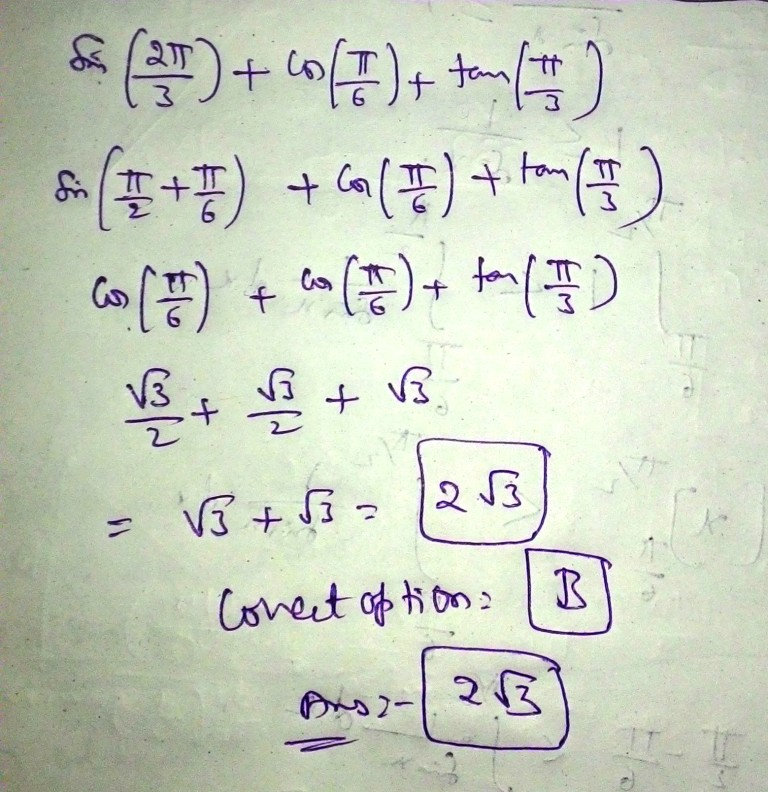 sin (2π/3) + cos(π/6) + tan(π/3)
sin (π/2 + π/6) + cos(π/6) + tan(π/3)
cos(π/6) + cos(π/6) + tan(π/3)
√3/2 + √3/2 + √3
= √3 + √3 = 2√3
Correct option = B
Ans :- 2√3